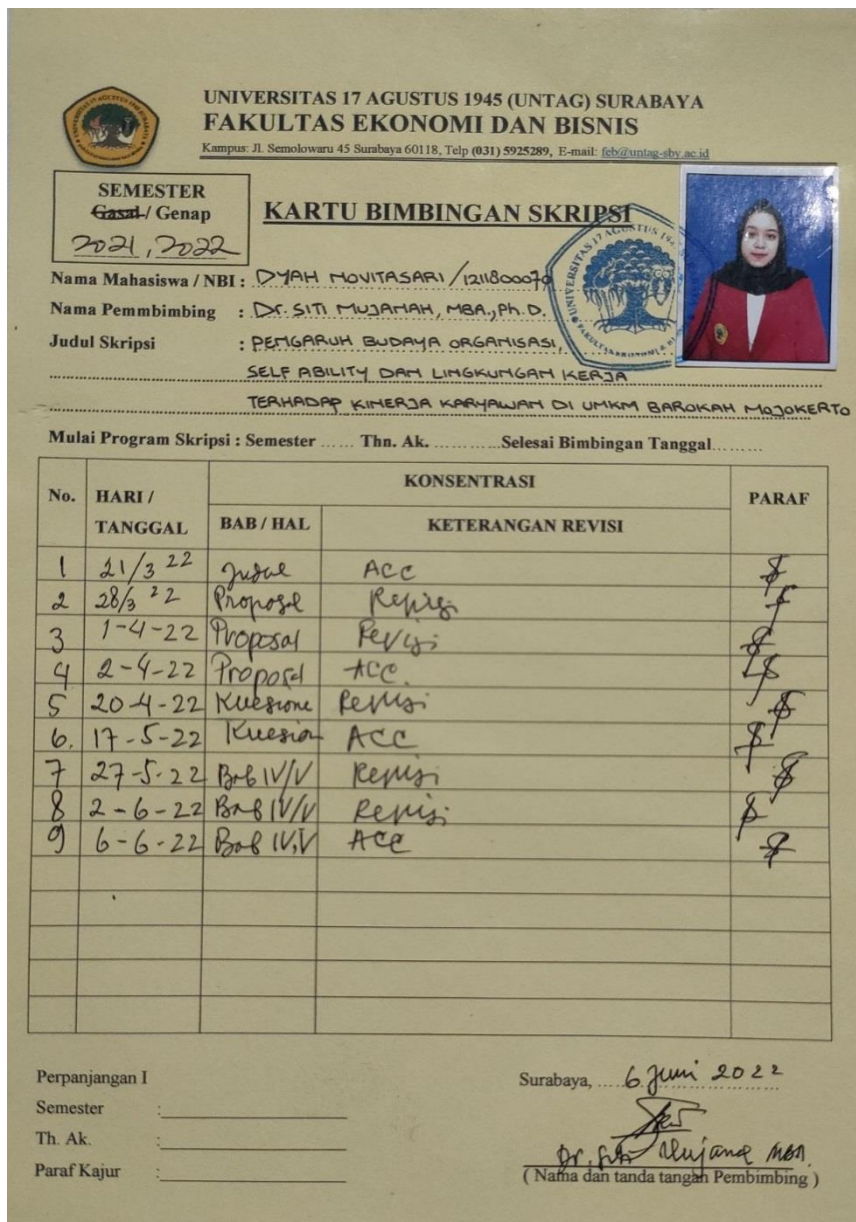 UNIVERSITAS 17 AGUSTUS 1945 (UNTAG) SURABAYA
FAKULTAS EKONOMI DAN BISNIS
Kampus: Jl. Semolowaru 45 Surabaya 60118, Telp (031) 5925289, E-mail: feb@untag-sby.ac.id
SEMESTER
Gasal / Genap
2021, 2022
KARTU BIMBINGAN SKRIPSI
Nama Mahasiswa / NBI : DYAH NOVITASARI / 1211800070
Nama Pemmbimbing : Dr. SITI MUJANAH, MBA., Ph.D.
Judul Skripsi : PENGARUH BUDAYA ORGANISASI,
SELF ABILITY DAN LINGKUNGAN KERJA
TERHADAP KINERJA KARYAWAN DI UMKM BAROKAH MOJOKERTO
Mulai Program Skripsi : Semester ...... Thn. Ak. ............Selesai Bimbingan Tanggal.........
No. HARI / TANGGAL KONSENTRASI PARAF
BAB / HAL KETERANGAN REVISI
1 21/3 22 Judul ACC
2 28/3 22 Proposal Revisi
3 1-4-22 Proposal Revisi
4 2-4-22 Proposal ACC.
5 20-4-22 Kuesione Revisi
6. 17-5-22 Kuesion ACC
7 27-5-22 Bab IV/V Revisi
8 2-6-22 Bab IV/V Revisi
9 6-6-22 Bab IV,V ACC
Perpanjangan I
Semester :
Th. Ak. :
Paraf Kajur :
Surabaya, ..... 6 Juni 2022
Dr. Siti Mujanah MBA.
( Nama dan tanda tangan Pembimbing )